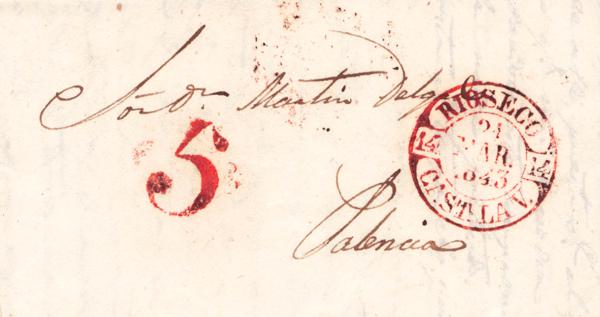 Sor Dn Martin Delg
RIOSECO
21
MAR.
1843
CAST. LA V.
5
Palencia